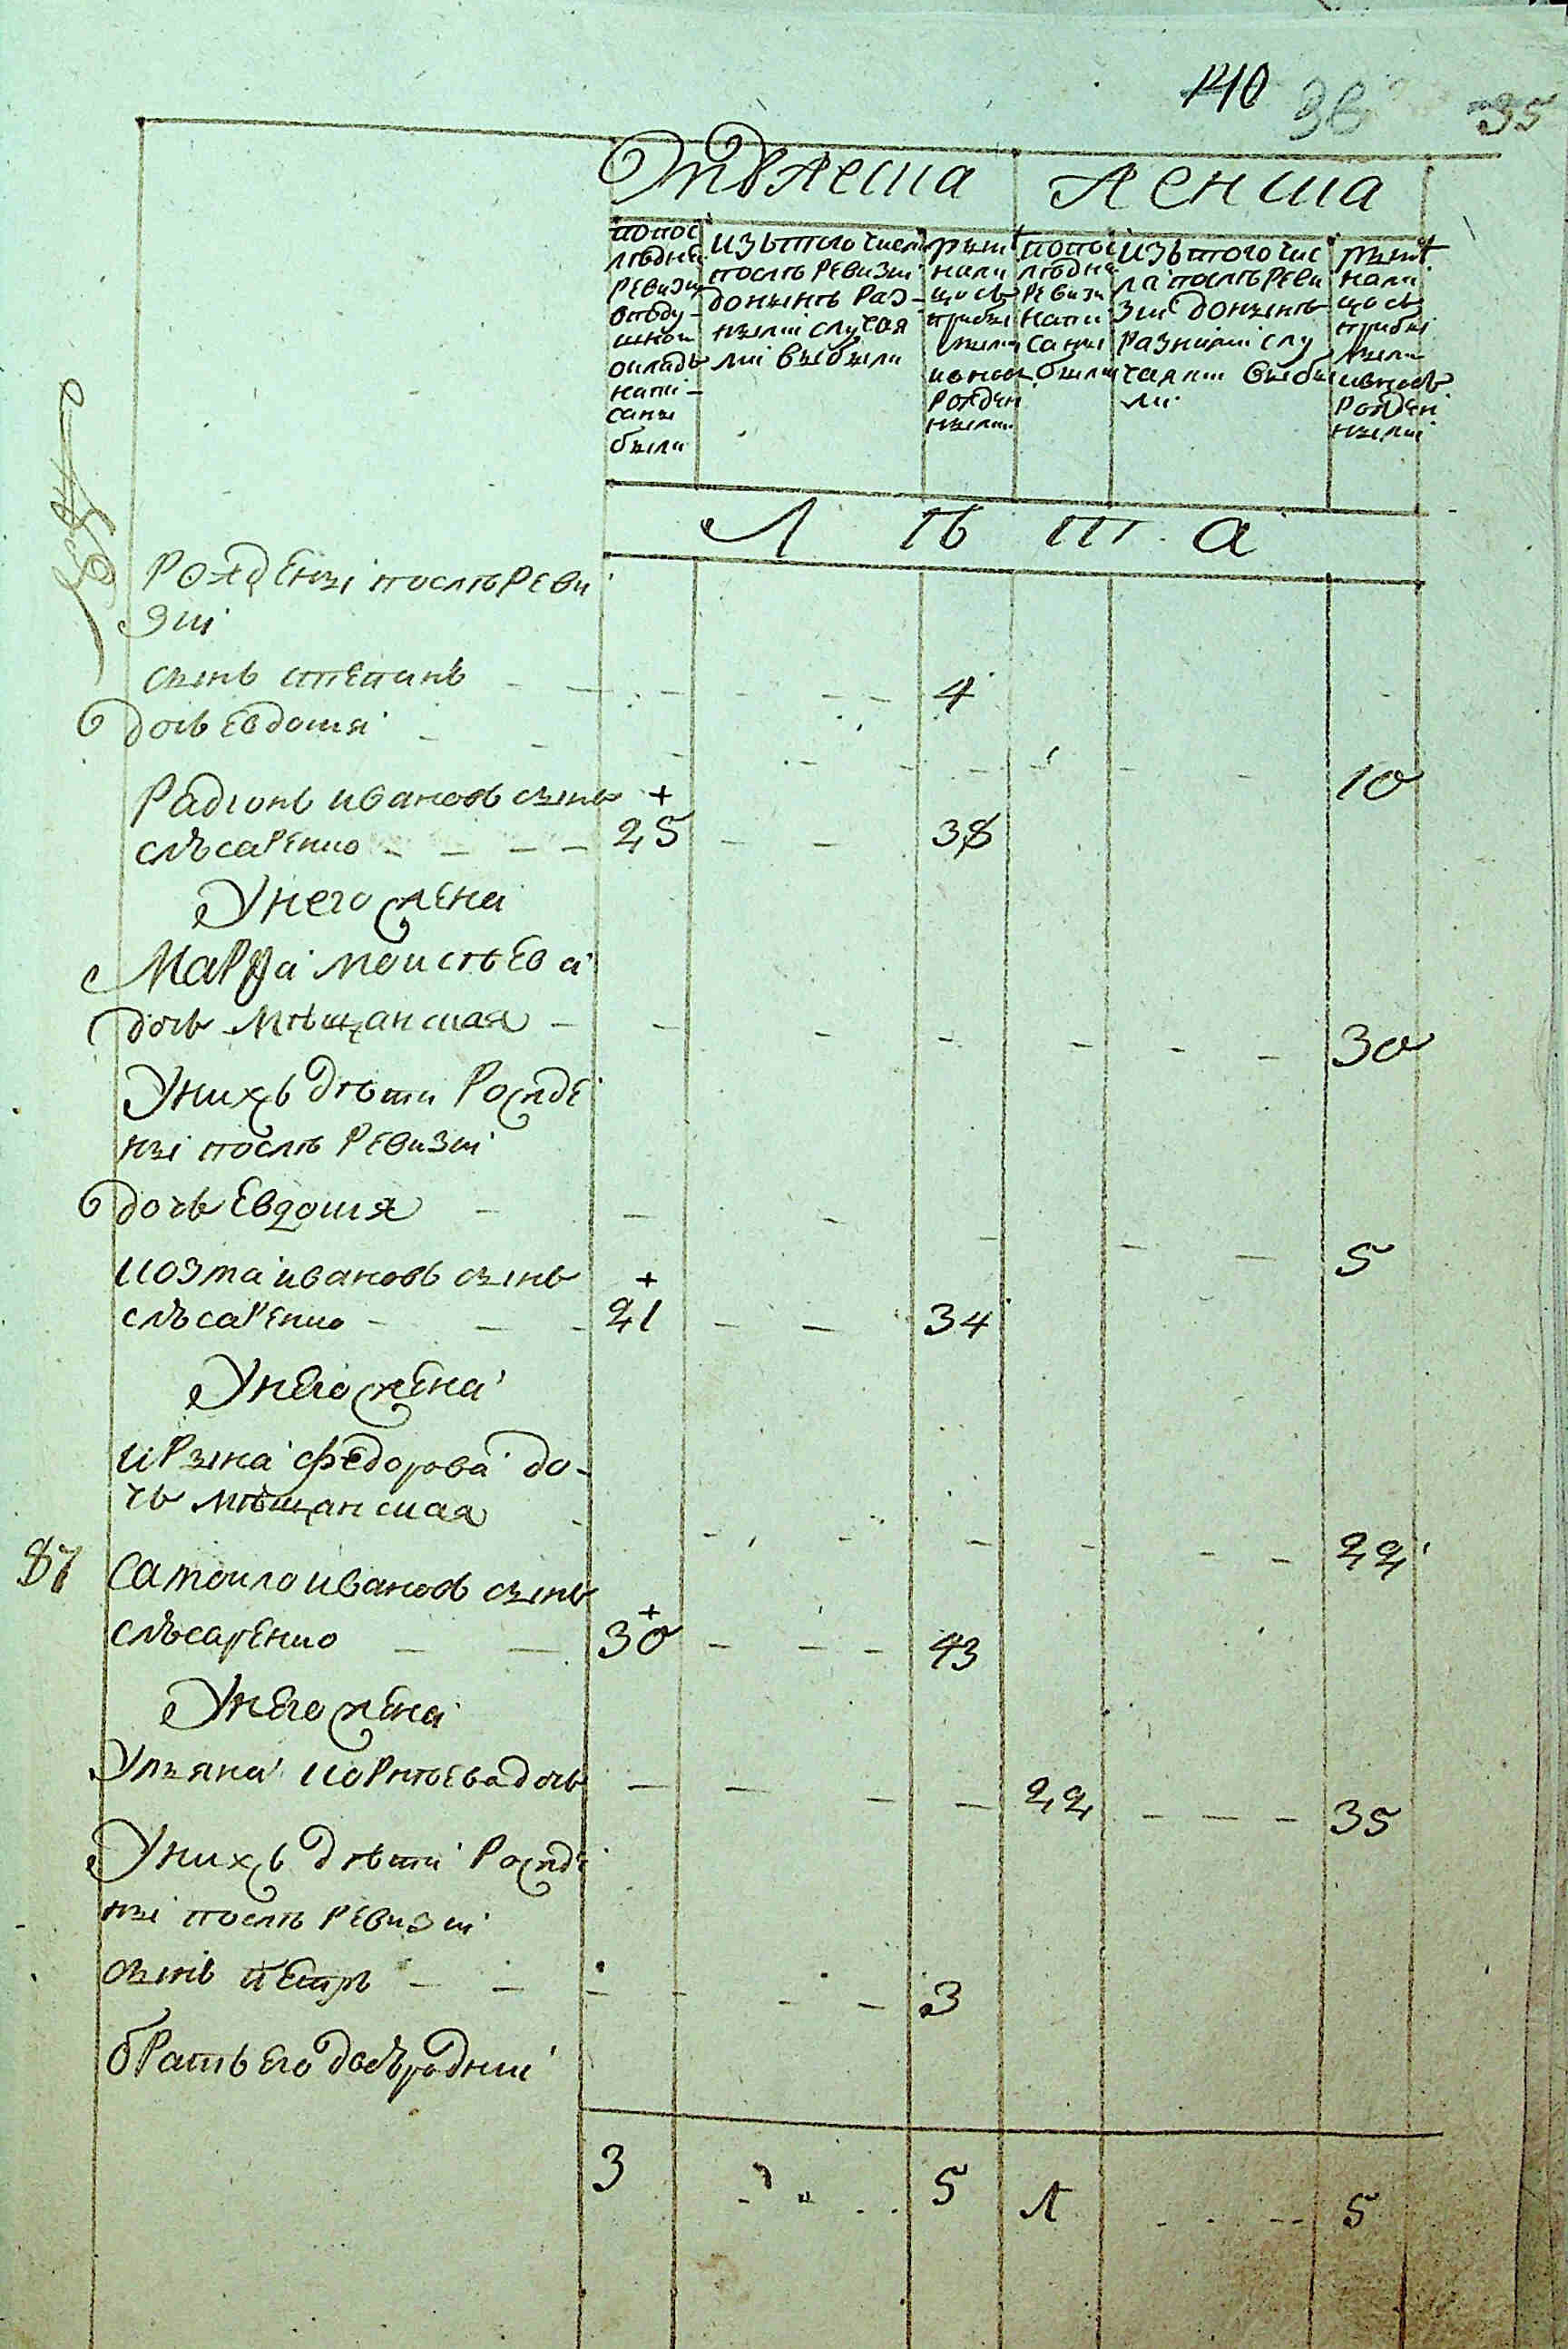 140 36 35
Мужеска
Женска
попос
лѣдней
ревизии
вподу-
шной
окладъ
напи-
саны
были
изътого числа
послѣ ревизии
донынѣ раз-
ными случая
ми выбыли
нынѣ
нали
цо съ
прибы
лыми
ивновь
рожден
ными
попос
лѣдне
ревизи
напи
саны
были
изътого чис
ла послѣ реви
зии донынѣ
разными слу
чаями выбы
ли
нынѣ
нали
цо съ
прибы
лыми
ивновь
рожден
ными
Л ѣ т а
Рожденыі послѣ Реви
зиі
сынъ степанъ 4
дочь Евдокия 10
Радіонъ ивановъ сынъ +
слѣсаренко 25 38
Унего жена
Марфа моисѣева
дочь мѣщанская 30
Унихъ дѣти Рожде
ныі послѣ Ревизиі
дочь Евдокия 5
козма ивановъ сынъ +
слѣсаренко 21 34
Унего жена
ирына федорова до-
чь мѣщанская 22
87 самоило ивановъ сынъ +
слѣсаренко 30 43
Унего жена
Ульяна корнѣева дочь 22 35
Унихъ дѣти Рожде
ныі послѣ Ревизиі
сынъ петръ 3
братъ его двоюродниі
3 5 1 5